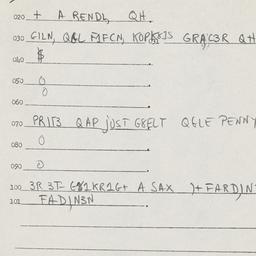 020 + A RENDL QH.
030 GILN, QGL FIFCN, KOPKKIS GRAC3R QH
040 $
050 0
0
060
070 PRIT3 QAP jUST G8ELT QGLE PENNY
080 0
090 0
100 3R 3T A SAX )+ FARDIN
102 FADIN3N